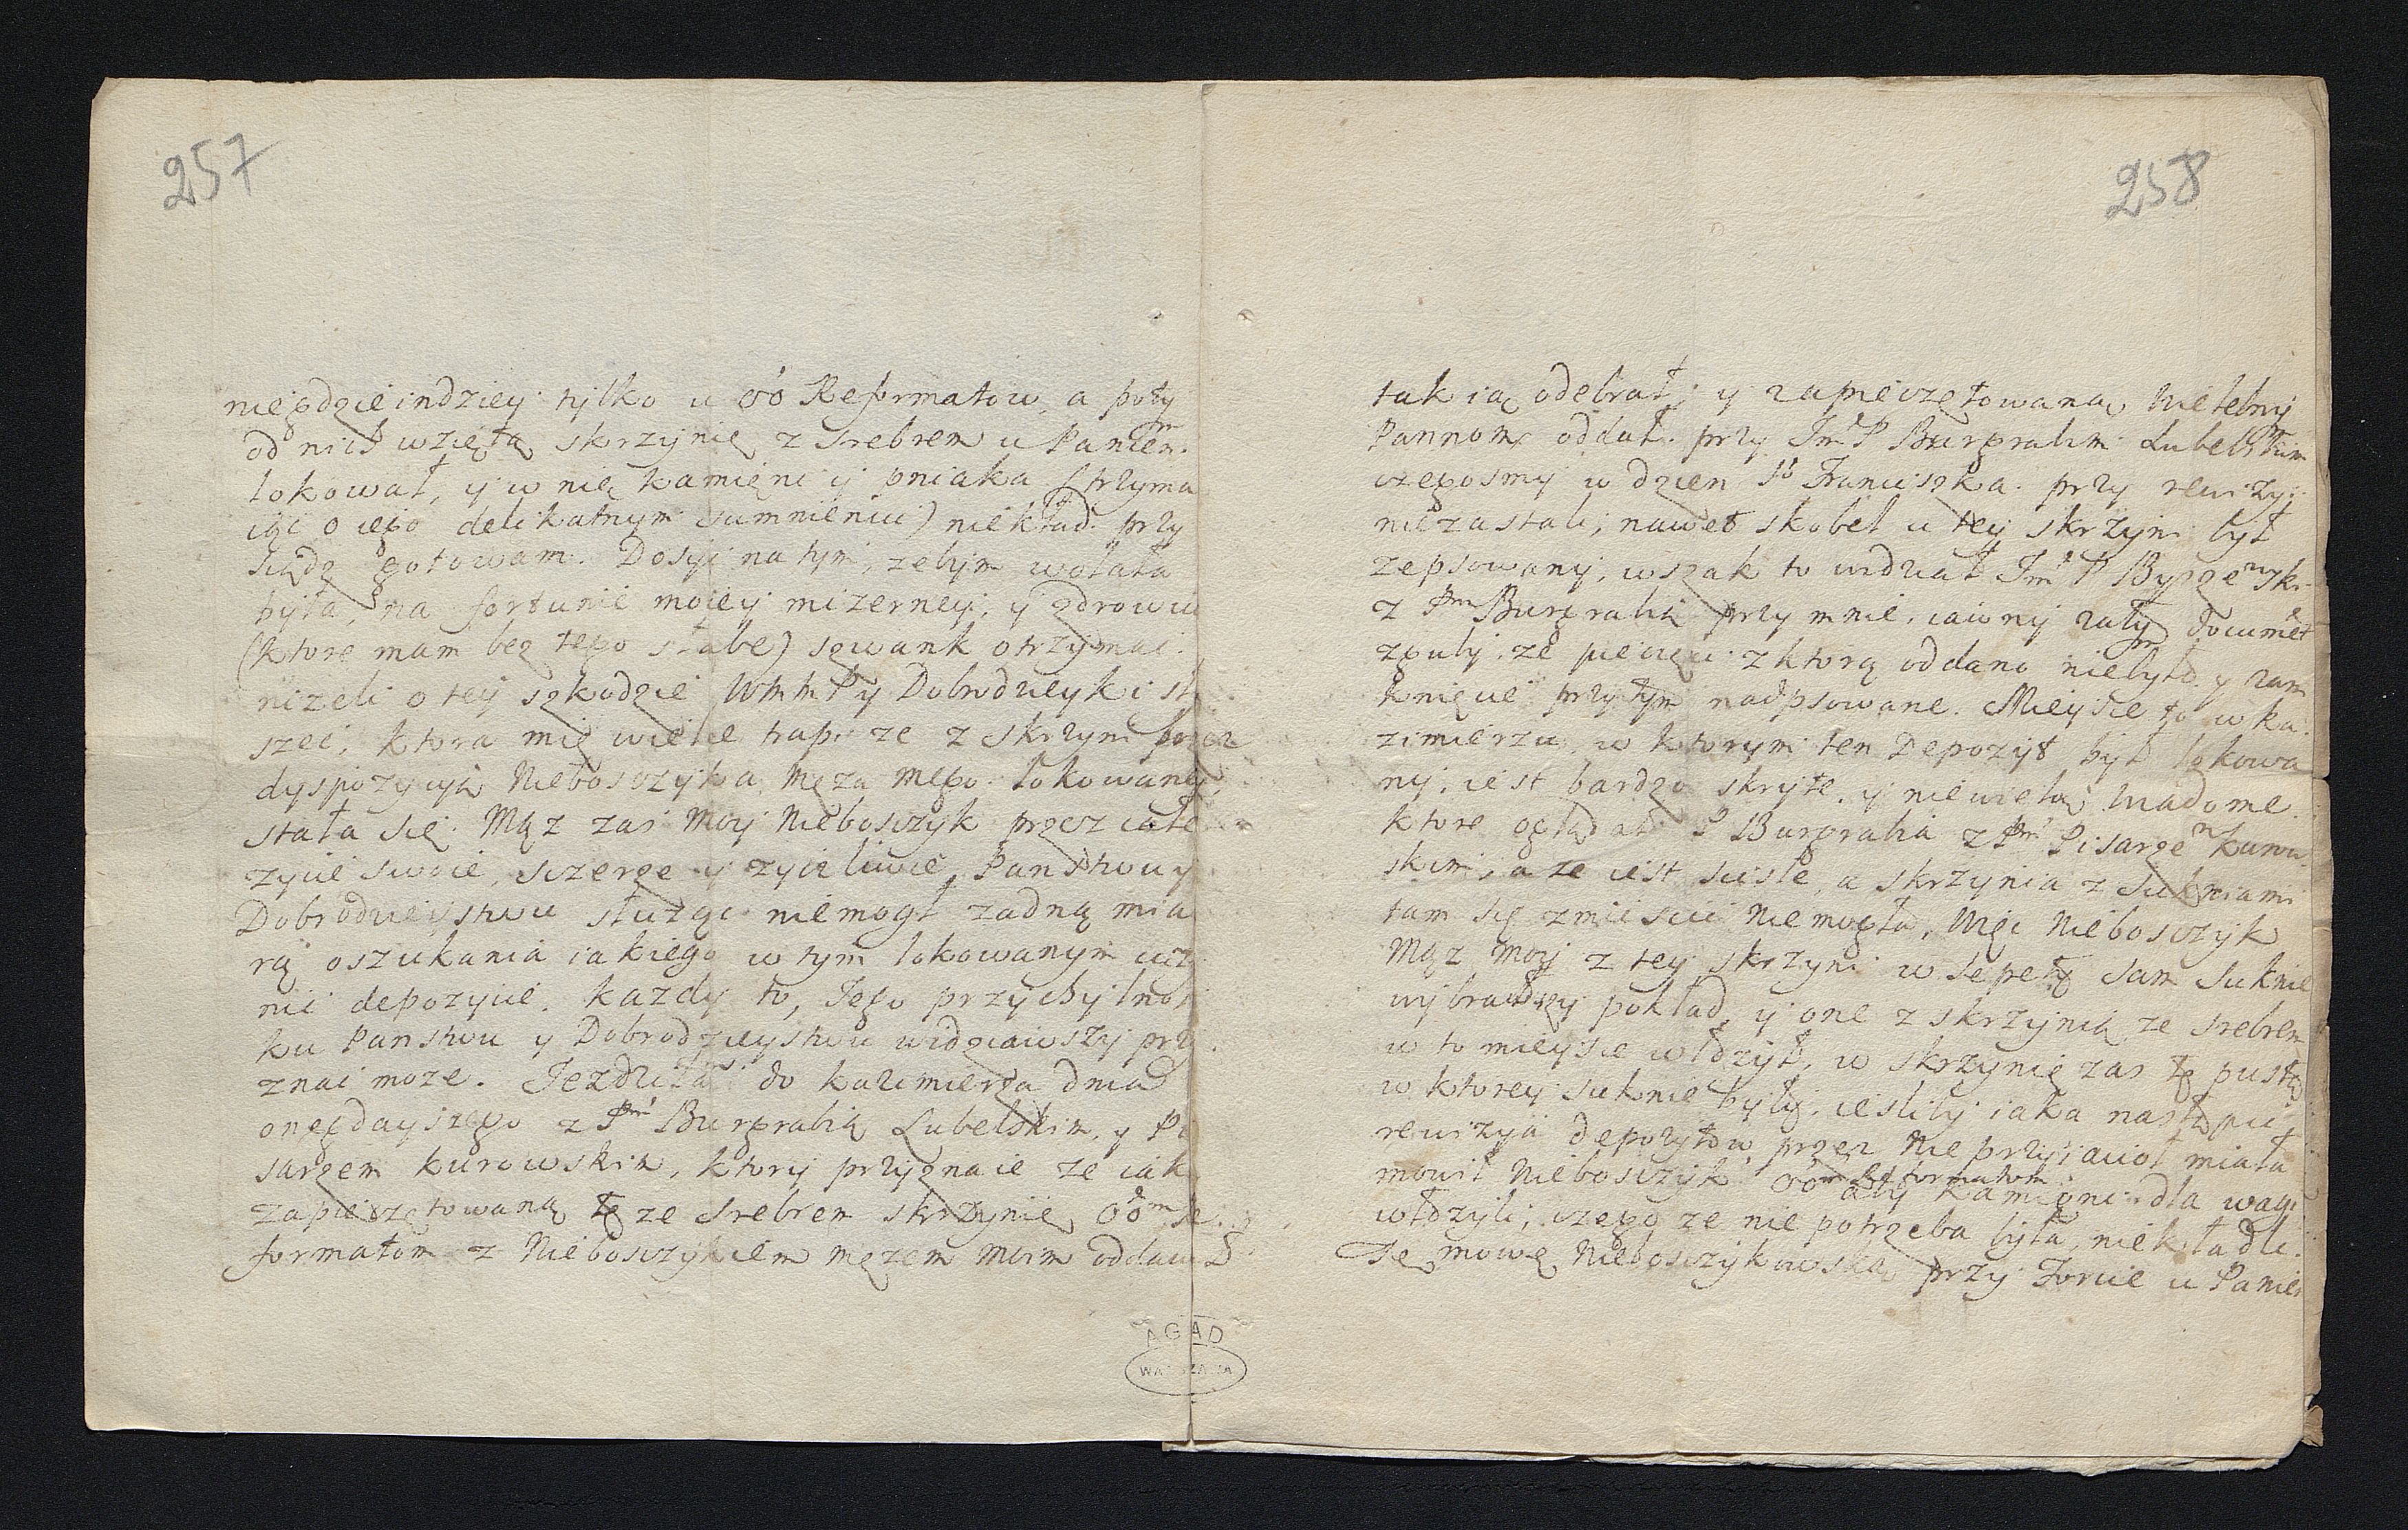 257
niegdzieindziey tylko u OO Reformatow, a poty͂
od nich wziętą skrzynię z srebrem u Panien
lokował, y w nię kamieni y pniaka (trzyma
iąc o iego delikatnym sumnieniu) niekład. przy
siądz gotowam. Dosyć na tym, zebym wolała
była, na fortunie moiey mizerney, y zdrowiu
(ktore mam bez tego słabe) szwank otrzymać.
nizeli o tey szkodzie WMMPy Dobrodzieyki sły
szeć, ktora mię wielce trapi ze z skrzyni przez
dyspozycyą Nieboszczyka Męza mego lokowaney,
stała się. Mąz zaś moy Nieboszczyk przez całe
zycie swoie, szerze y zyczliwie Panstwu y
Dobrodzieystwu słuząc niemogł zadną mia
rą oszukania iakiego w tym lokowanym uczy
nić depozycie. Kazdy to, Jego przychylnosć
ku Panstwu y Dobrodzieystwu widziawszy przy
znać moze. Jezdziła do Kazimierza dnia
onegdayszego z Pm Burgrabią Lubelskim, y Pi
sarzem Kurowskim, ktory przyznaie ze iak
zapieczętowaną tę ze srebrem skrzynię OOm Re
formatom z Nieboszczykiem męzem moim oddawał
258
tak ią odebrał, y zapieczętowaną Wielebny͂
Pannom oddał. przy Jmć P Burgrabim Lubelskim
czegosmy w dzien So Franciszka przy rewizyi
niezastali; nawet skobel u tey skrzyni był
zepsowany, wszak to widział Jmć P Byszewski
z Pm Burgrabią przy mnie, iawny zaty͂ documet
zguby, ze pieczęci z ktorą oddano niebyło y zam
knięcie przytym nadpsowane. Mieysce to w Ka
zimierzu, w ktorym ten Depozyt był lokowa
ny, iest bardzo skryte, y niewielą wiadome.
ktore oglądał P Burgrabia z Pm Pisarzem Kurow
skim, a ze iest scisłe, a skrzynia z Sukniami
tam się zmiescić niemogła, więc Nieboszczyk
Mąz moy z tey skrzyni w sepety sam Suknie
wybrawszy pokład, y one z skrzynią ze srebrem
w to mieysce włozył, w skrzynię zas tę pustą
w ktorey suknie były, iesliby iaka nastąpić
rewizyia depozytow przez Nieprzyiacioł miała
mowił Nieboszczyk OOm Reformatom aby kamieni dla wagi
włozyli; czego ze nie potrzeba była, niekładli.
Tę mowę Nieboszczykowską przy Forcie u Panien
AGAD
WARSZAWA